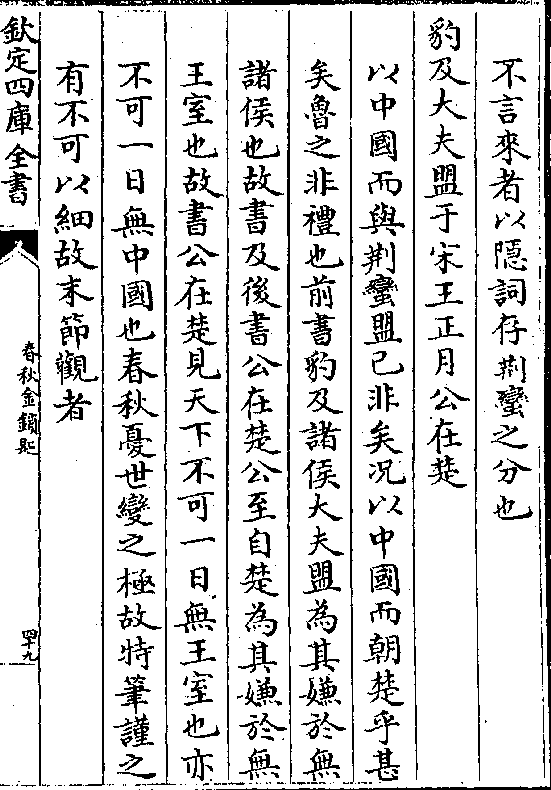 不言來者以隱詞存荆蠻之分也
豹及大夫盟于宋王正月公在楚
以中國而與荆蠻盟已非矣况以中國而朝楚乎甚
矣魯之非禮也前書豹及諸侯大夫盟為其嫌於無
諸侯也故書及後書公在楚公至自楚為其嫌於無
王室也故書公在楚見天下不可一日無王室也亦
不可一日無中國也春秋憂世變之極故特筆謹之
有不可以細故末節觀者
欽定四庫全書
春秋金鎖匙
四十九